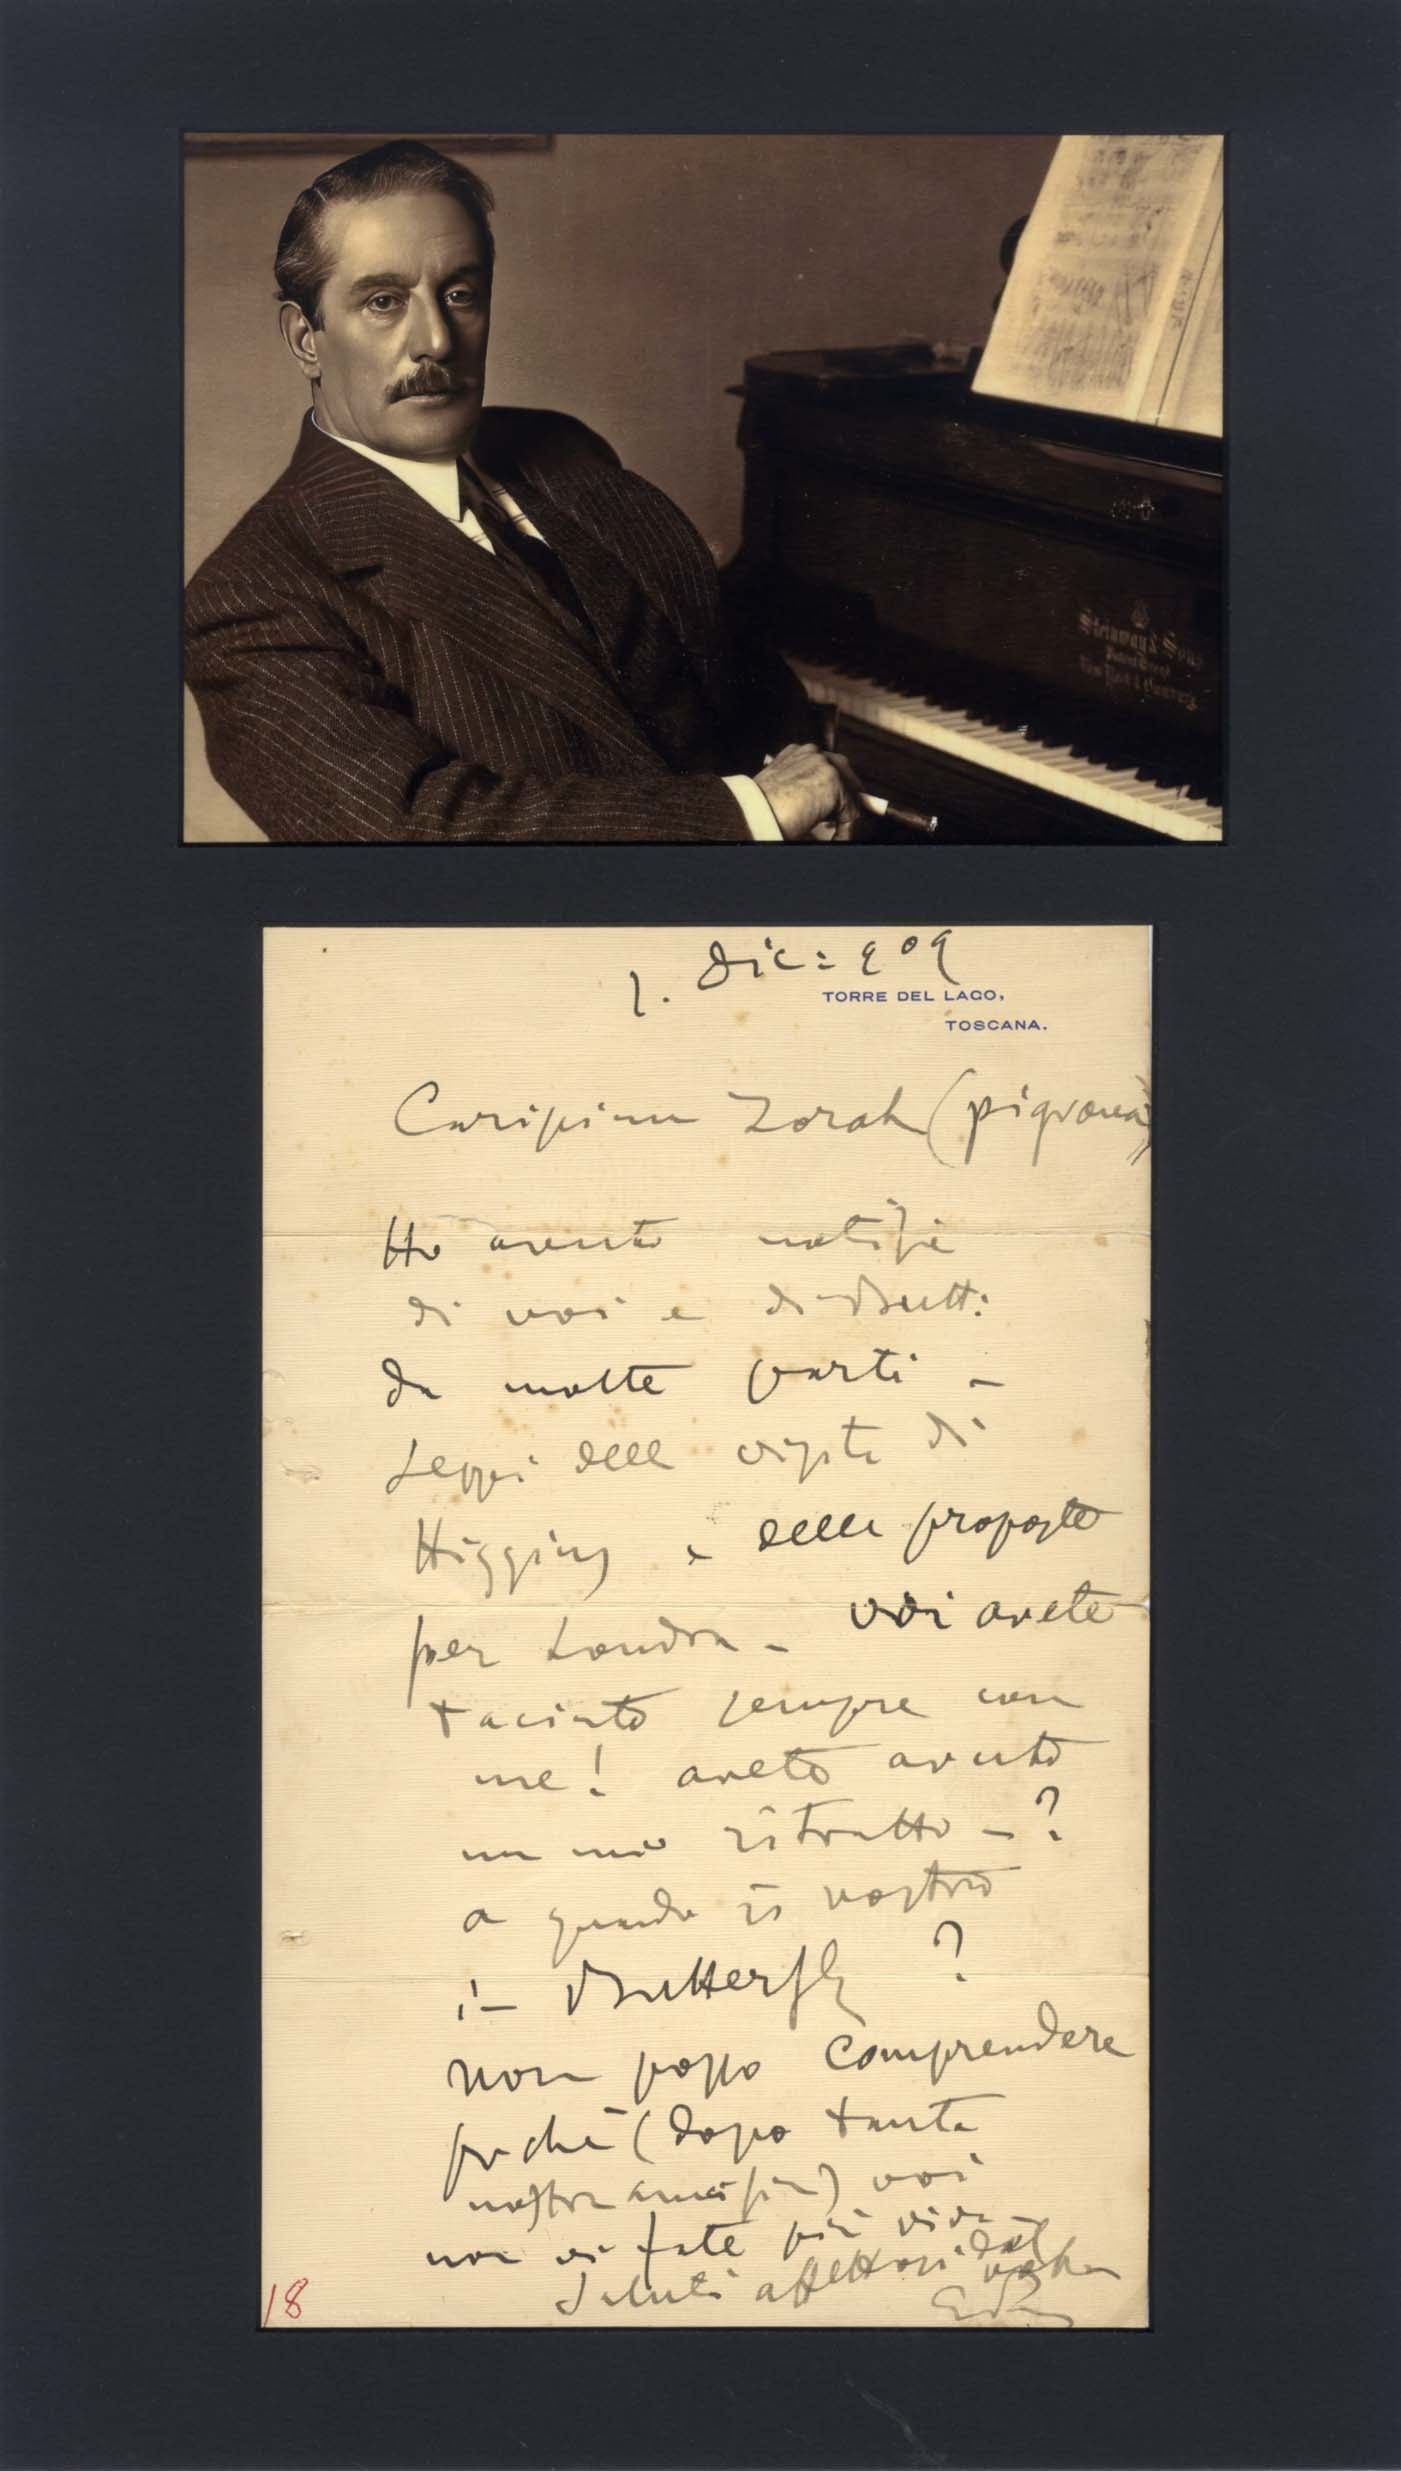 Steinway & Sons
1. Dic= 909
TORRE DEL LAGO,
TOSCANA.
Carissima Zorah (pigrona)
Ho avuto notizie
di voi e di Butt:
da molte parti –
Seppi della visita di
Higgins e delle proposte
per Londra – voi avete
taciuto sempre con
me! avete avuto
un mio ritratto – ?
a quando il vostro
in Butterfly ?
non posso comprendere
perchè (dopo tanta
nostra amicizia) voi
non vi fate più viva –
Saluti affettuosi dal
vostro
18